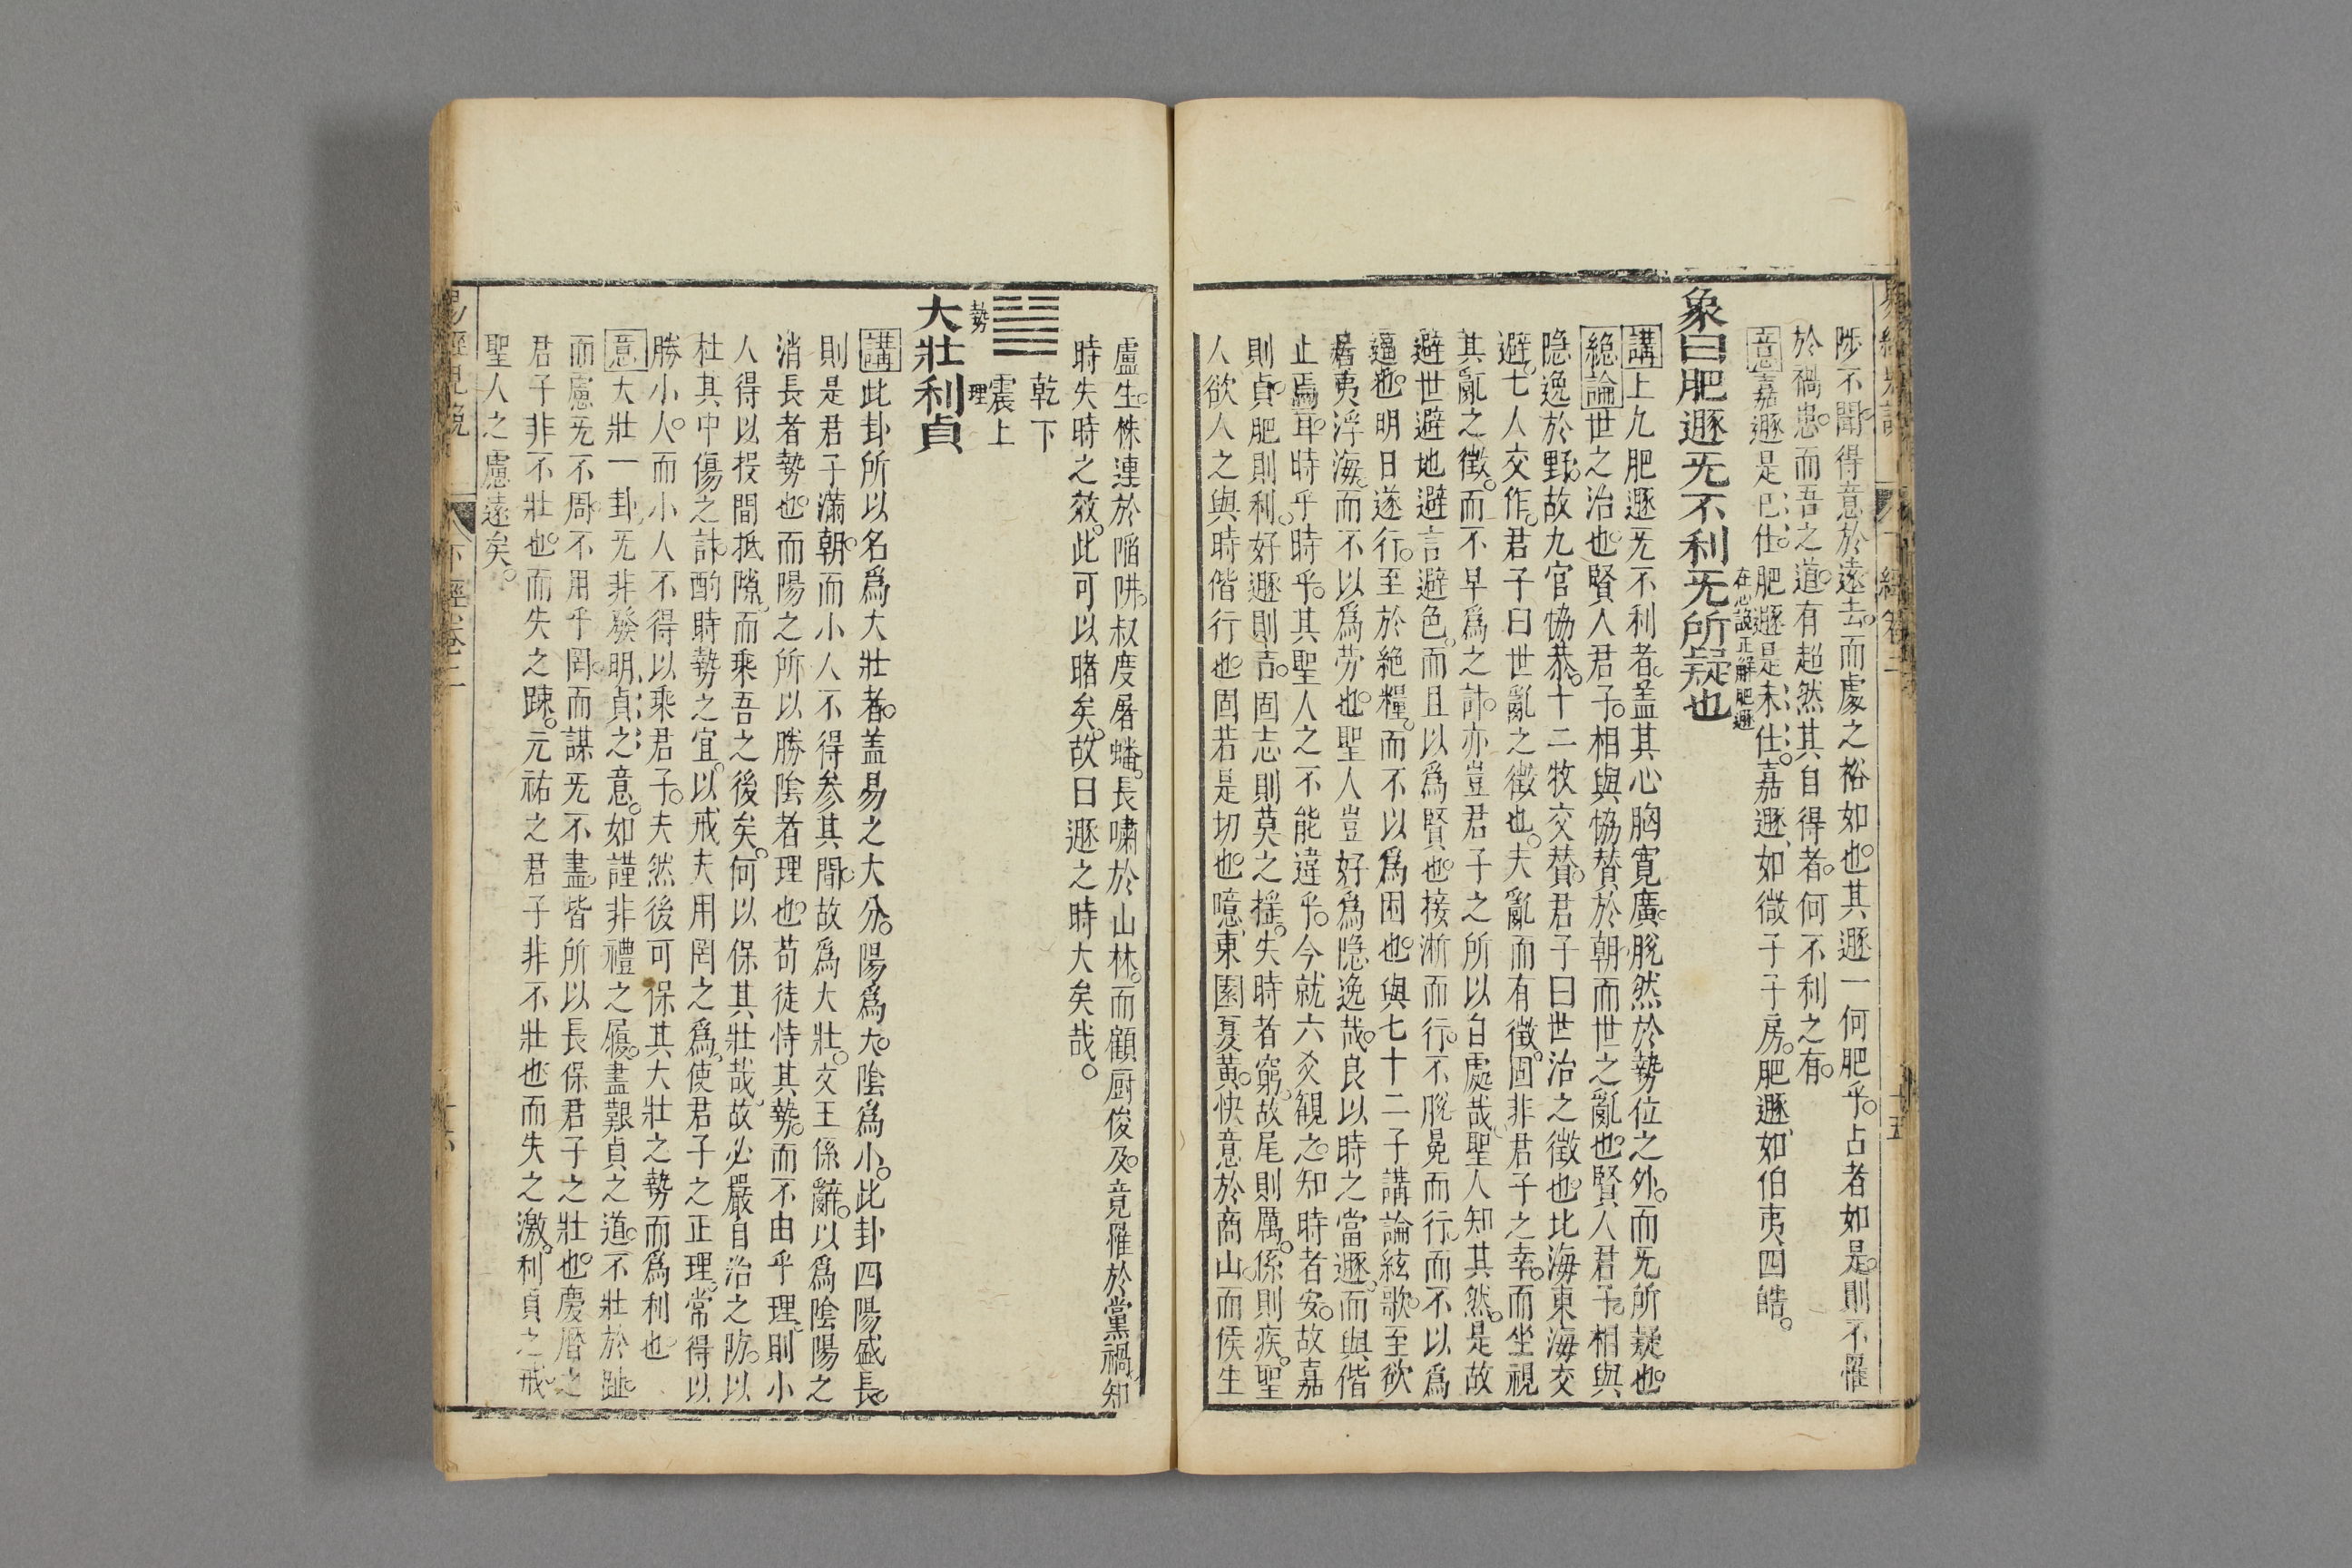 陟不聞得意於遠去而處之裕如也其遯一何肥乎占者如是則不罹
於禍患而吾之道有超然其自得者何不利之有
意嘉遯是已仕肥遯是未仕嘉遯如微子子房肥遯如伯夷四皓
象曰肥遯无不利无所疑也
講上九肥遯无不利者蓋其心胸寬廣脫然於勢位之外而无所疑也
絕論世之治也賢人君子相與協贊於朝而世之亂也賢人君子相與
隐逸於野故九官恊恭十二牧交贊君子曰世治之徵也北海東海交
避七人交作君子曰世亂之徵也夫亂而有徵固非君子之幸而坐視
其亂之徵而不早爲之計亦豈君子之所以自處哉聖人知其然是故
避世避地避言避色而且以爲賢也接淅而行不脫冕而行而不以爲
逼也明日遂行至於絕糧而不以爲困也與七十二子講論絃歌至欲
居夷浮海而不以爲劳也聖人豈好爲隐逸哉良以時之當遯而與偕
止焉耳時乎時乎其聖人之不能違乎今就六爻観之知時者安故嘉
則貞肥則利好遯則吉固志則莫之搖失時者窮故尾則厲係則疾聖
人欲人之與時偕行也固若是切也噫東園夏黃快意於商山而侯生
盧生株連於陥阱叔度屠蟠長嘯於山林而顧厨俊及竟罹於黨禍知
時失時之效此可以睹矣故曰遯之時大矣哉
乾下
震上
勢 理
大壯利貞
講此卦所以名爲大壯者蓋易之大分陽爲大陰爲小此卦四陽盛長
則是君子滿朝而小人不得參其間故爲大壯文王係辭以爲陰陽之
消長者勢也而陽之所以勝陰者理也苟徒恃其勢而不由乎理則小
人得以投間抵隙而乘吾之後矣何以保其壯哉故必嚴自治之防以
杜其中傷之計酌時勢之宜以戒夫用罔之爲使君子之正理常得以
勝小人而小人不得以乘君子夫然後可保其大壯之勢而爲利也
意大壯一卦无非發明貞之意如謹非禮之履盡艱貞之道不壯於趾
而慮无不周不用乎罔而謀无不盡皆所以長保君子之壯也慶曆之
君子非不壯也而失之踈元祐之君子非不壯也而失之激利貞之戒
聖人之慮遠矣